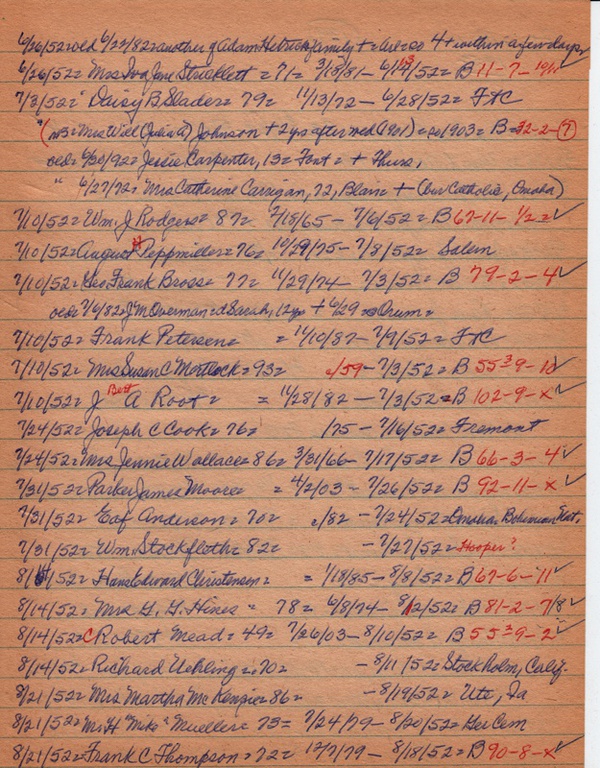 6/26/52= oed 6/29/82= another of Adam Hetrick family + = 4+ within a few days
6/26/52= Mrs Iva Jane Stricklett = 71= 3/13/81 - 6/19/52= B 11-7-
7/3/52= " Daisy B. Slader= 79= 11/13/72 - 6/28/52= FtC
"(m3= Mrs Will (Julia A) Johnson + 2 yrs after med (1901) = so 1903= B= 32-2-(7)
oed= 6/30/92= Jessie Carpenter, 13= Font = + Thurs,
" 6/27/72= Mrs Catherine Carrigan, 72, Blair + (bur Catholic, Omaha)
7/10/52= Wm. J Rodgers= 87= 2/18/65 - 7/6/52= B 67-11-1/2= ✓
7/10/52= August H Peppmiller= 76= 10/29/75 - 7/8/52= Salem
7/10/52= Geo Frank Bross= 77= 11/29/74 - 7/3/52= B 79-2-4 ✓
oed= 7/6/82= J M Overman= d Sarah, 12 yrs + 6/29 = Orum=
7/10/52= Frank Petersen= = 11/10/87 - 7/9/52= FtC
7/10/52= Mrs Susan C Mortlock= 93= c/59 - 7/3/52= B 55 39-10 ✓
7/10/52= J Bert A Root= = 11/28/82 - 7/3/52= B 102-9-x ✓
7/24/52= Joseph C Cook= 76= /75 - 7/16/52= Fremont
7/24/52= Mrs Jennie Wallace= 86= 3/31/66 - 7/17/52= B 66-3-4 ✓
7/31/52= Parker James Moore= = 4/2/03 - 7/26/52= B 92-11-x ✓
7/31/52= Eaf Anderson= 70= c/82 - 7/24/52= Bohemian Nat.
7/31/52= Wm. Stockfloth= 82= - 7/27/52= Hooper?
8/14/52= Hans Edward Christensen= = 1/18/85 - 8/8/52= B 67-6-11 ✓
8/14/52= Mrs G. G. Hines = 78= 6/8/74 - 8/12/52= B 81-2-7/8 ✓
8/14/52= C Robert Mead= 49= 7/26/03 - 8/10/52= B 55 39-2 ✓
8/14/52= Richard Uehling= 70= - 8/11/52= Stockholm, Calif.
8/21/52= Mrs Martha McKenzie= 86= - 8/19/52= Ute, Ia
8/21/52= Mr. H "Mike" Mueller= 73= 7/24/79 - 8/20/52= Ger Cem
8/21/52= Frank C Thompson= 72= 12/7/79 - 8/18/52= B 90-8-x ✓